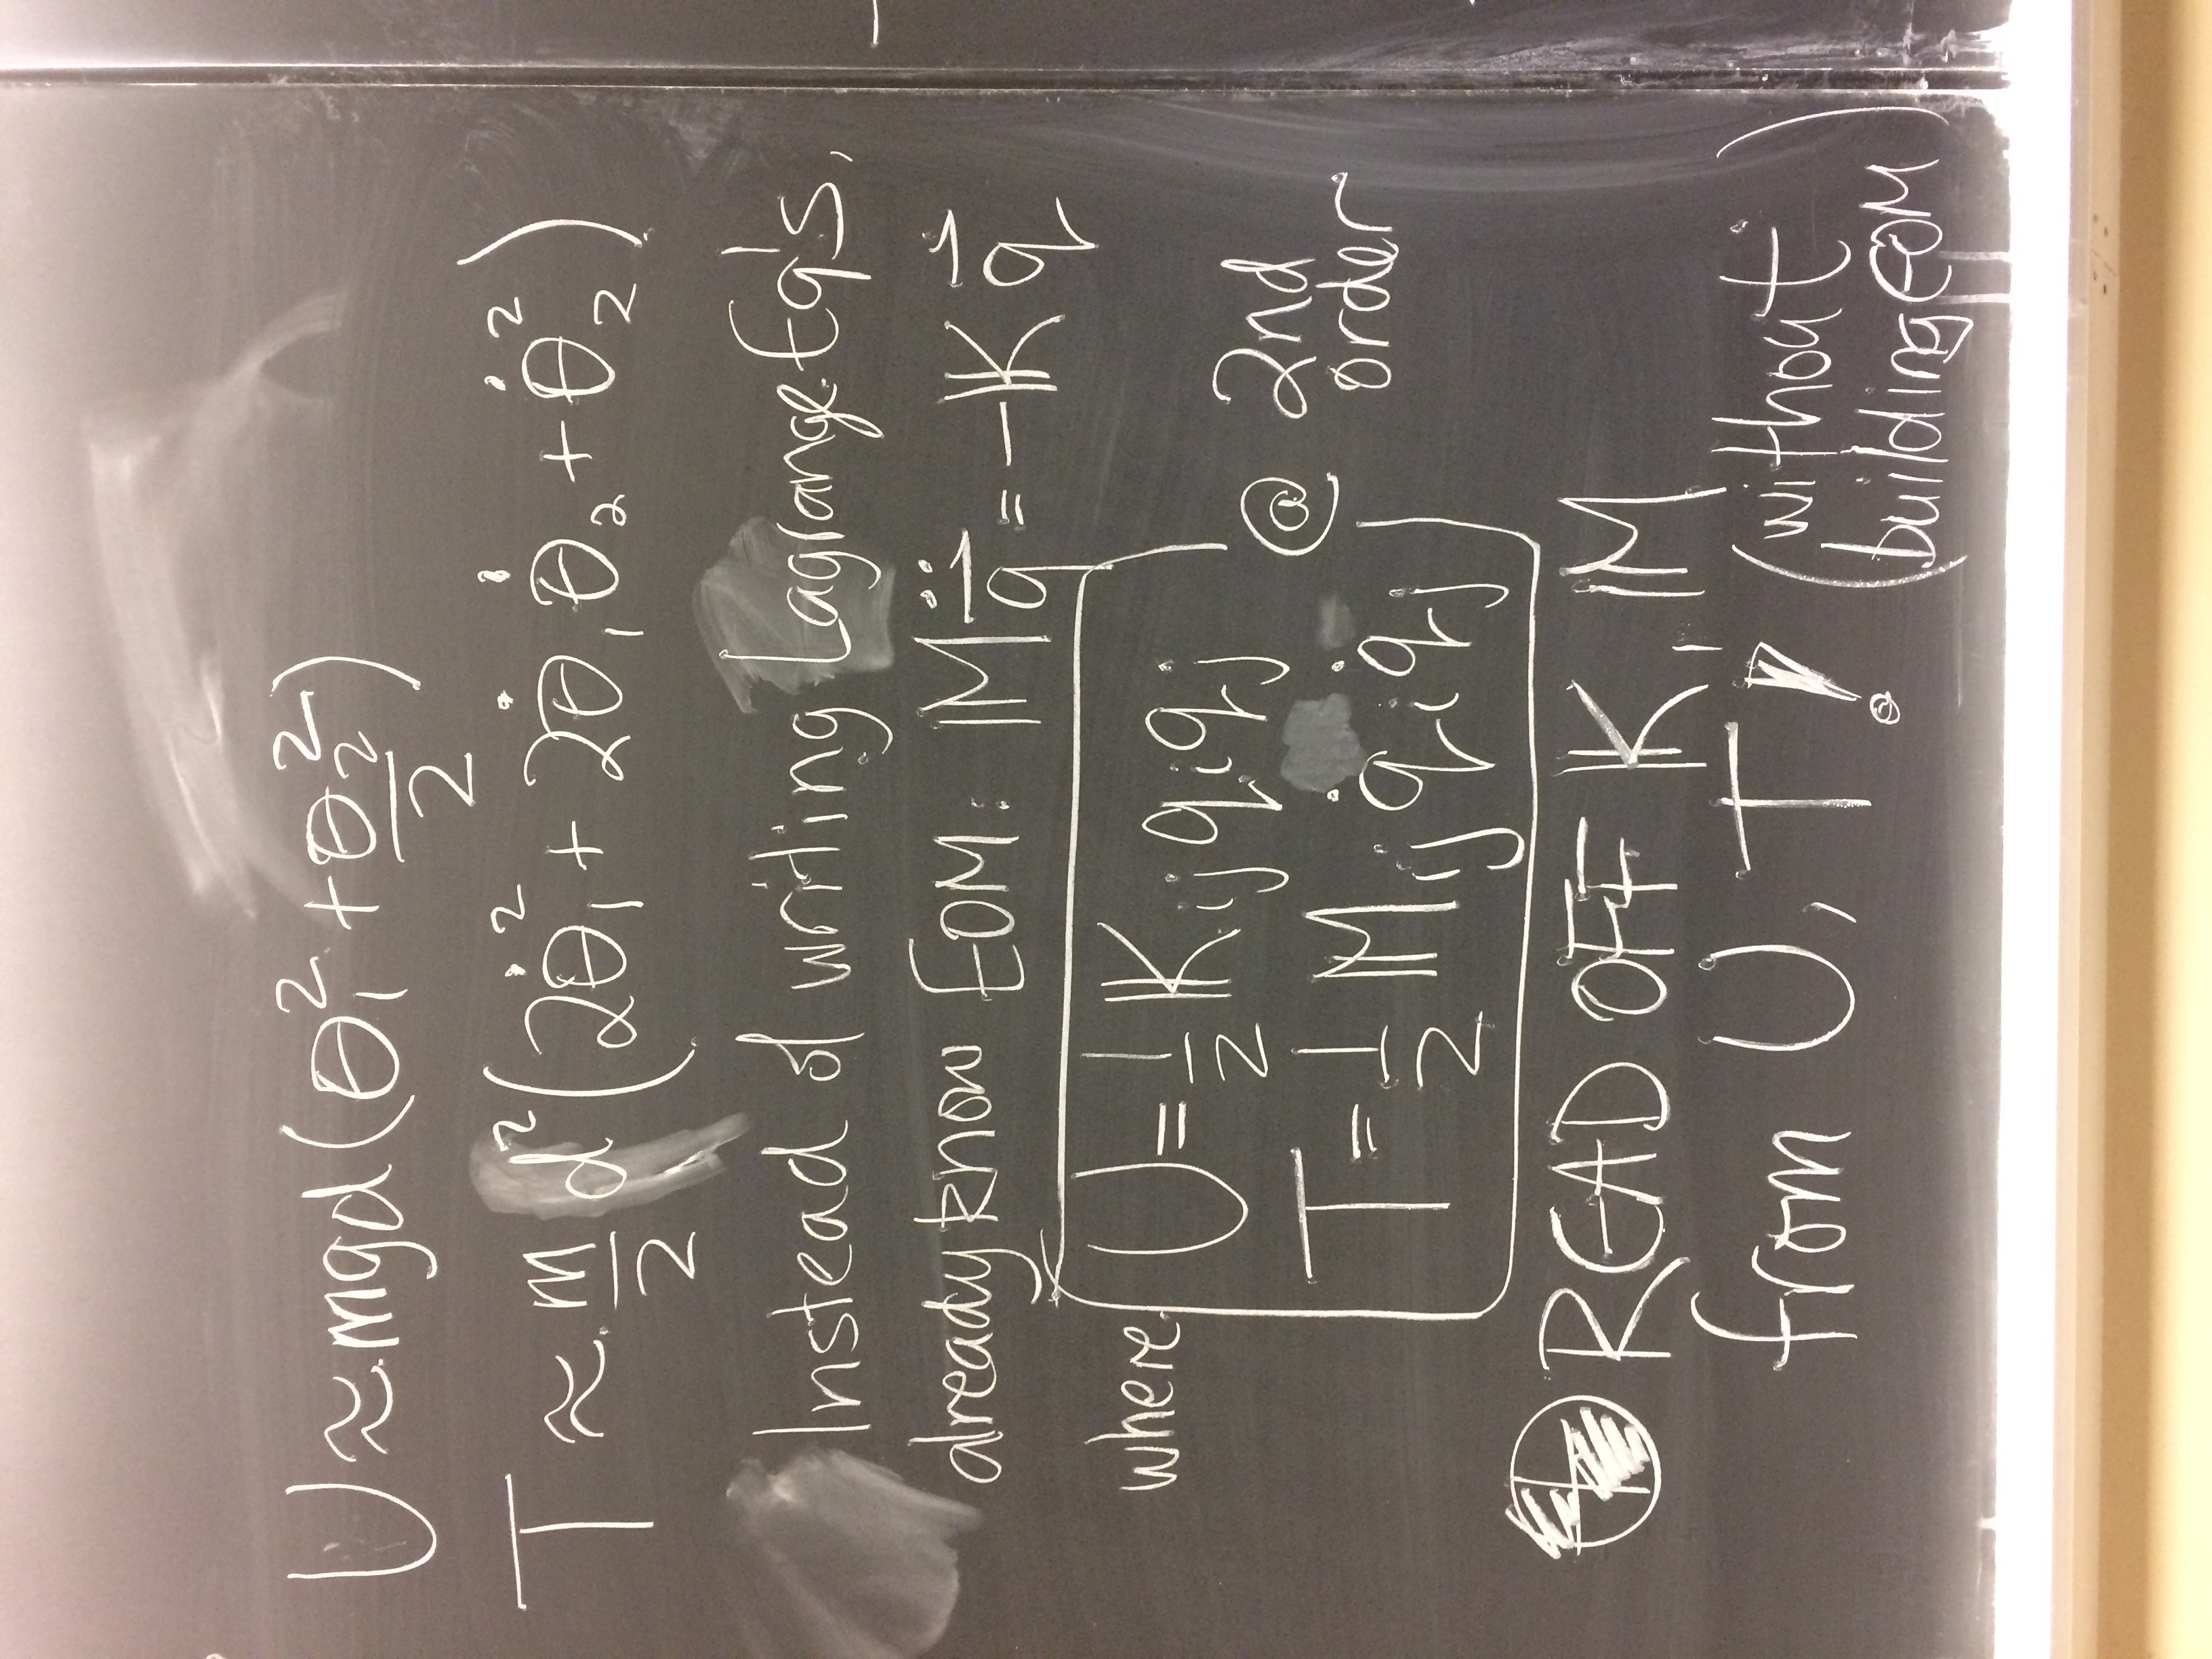 U ≈ mgd(θ₁² + θ₂²/2)
T ≈ m/2 d²(2θ̇₁² + 2θ̇₁θ̇₂ + θ̇₂²)
Instead of writing Lagrange Eq's,
already know EOM: 𝕄q̈⃗ = -𝕂q⃗
where U = 1/2 𝕂ij qi qj
T = 1/2 𝕄ij q̇i q̇j
@ 2nd order
READ OFF 𝕂, 𝕄
from U, T! (without building EOM)